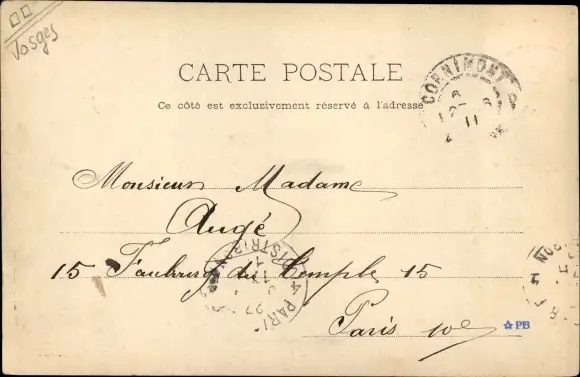 Vosges
CARTE POSTALE
Ce côté est exclusivement réservé à l'adresse
CORNIMONT
Monsieur Madame
Augé
15 Faubourg du Temple 15
Paris 10e
PARI
DISTRIB
PB